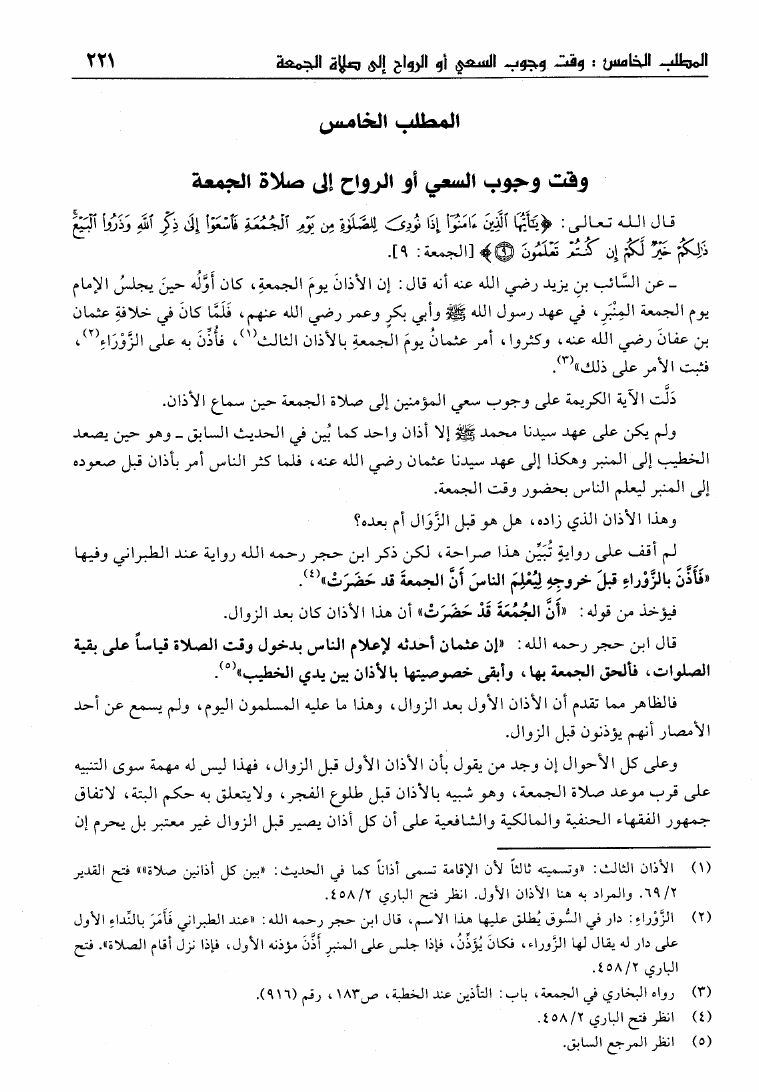 المطلب الخامس : وقت وجوب السعي أو الرواح إلى صلاة الجمعة ٢٢١
المطلب الخامس
وقت وجوب السعي أو الرواح إلى صلاة الجمعة
قال الـلـه تـعـالـى : ﴿يَٰٓأَيُّهَا ٱلَّذِينَ ءَامَنُوٓا۟ إِذَا نُودِىَ لِلصَّلَوٰةِ مِن يَوْمِ ٱلْجُمُعَةِ فَٱسْعَوْا۟ إِلَىٰ ذِكْرِ ٱللَّهِ وَذَرُوا۟ ٱلْبَيْعَ ۚ
ذَٰلِكُمْ خَيْرٌ لَّكُمْ إِن كُنتُمْ تَعْلَمُونَ ۝٩﴾ [الجمعة: ٩].
ـ عن السَّائب بن يزيد رضي الله عنه أنه قال: إن الأذانَ يومَ الجمعةِ، كان أوَّلُه حينَ يجلسُ الإمام
يوم الجمعة المِنْبَرِ، في عهد رسول الله ﷺ وأبي بكرٍ وعمر رضي الله عنهم، فَلَمَّا كانَ في خلافةِ عثمان
بن عفانَ رضي الله عنه، وكثروا، أمر عثمانُ يومَ الجمعةِ بالأذان الثالث(١)، فأُذِّنَ به على الزَّوْرَاءِ(٢)،
فثبت الأمر على ذلك»(٣).
دَلَّت الآية الكريمة على وجوب سعي المؤمنين إلى صلاة الجمعة حين سماع الأذان.
ولم يكن على عهد سيدنا محمد ﷺ إلا أذان واحد كما بُين في الحديث السابق ـ وهو حين يصعد
الخطيب إلى المنبر وهكذا إلى عهد سيدنا عثمان رضي الله عنه، فلما كثر الناس أمر بأذان قبل صعوده
إلى المنبر ليعلم الناس بحضور وقت الجمعة.
وهذا الأذان الذي زاده، هل هو قبل الزَّوَال أم بعده؟
لم أقف على روايةٍ تُبَيِّن هذا صراحة، لكن ذكر ابن حجر رحمه الله رواية عند الطبراني وفيها
«فَأَذَّنَ بالزَّوْراءِ قبلَ خروجِهِ لِيُعْلِمَ الناسَ أنَّ الجمعةَ قد حَضَرَتْ»(٤).
فيؤخذ من قوله: «أَنَّ الجُمُعَةَ قَدْ حَضَرَتْ» أن هذا الأذان كان بعد الزوال.
قال ابن حجر رحمه الله: «إن عثمان أحدثه لإعلام الناس بدخول وقت الصلاة قياساً على بقية
الصلوات، فألحق الجمعة بها، وأبقى خصوصيتها بالأذان بين يدي الخطيب»(٥).
فالظاهر مما تقدم أن الأذان الأول بعد الزوال، وهذا ما عليه المسلمون اليوم، ولم يسمع عن أحد
الأمصار أنهم يؤذنون قبل الزوال.
وعلى كل الأحوال إن وجد من يقول بأن الأذان الأول قبل الزوال، فهذا ليس له مهمة سوى التنبيه
على قرب موعد صلاة الجمعة، وهو شبيه بالأذان قبل طلوع الفجر، ولايتعلق به حكم البتة، لاتفاق
جمهور الفقهاء الحنفية والمالكية والشافعية على أن كل أذان يصير قبل الزوال غير معتبر بل يحرم إن
(١) الأذان الثالث: «وتسميته ثالثاً لأن الإقامة تسمى أذاناً كما في الحديث: «بين كل أذانين صلاة»» فتح القدير
٢/٦٩. والمراد به هنا الأذان الأول. انظر فتح الباري ٢/٤٥٨.
(٢) الزَّوْراءِ: دار في السُّوق يُطلق عليها هذا الاسم، قال ابن حجر رحمه الله: «عند الطبراني فَأَمَرَ بالنِّداءِ الأول
على دار له يقال لها الزَّوراء، فكانَ يُؤَذِّنُ، فإذا جلس على المنبرِ أَذَّنَ مؤذنه الأول، فإذا نزل أقام الصلاة». فتح
الباري ٢/٤٥٨.
(٣) رواه البخاري في الجمعة، باب: التأذين عند الخطبة، ص١٨٣، رقم (٩١٦).
(٤) انظر فتح الباري ٢/٤٥٨.
(٥) انظر المرجع السابق.